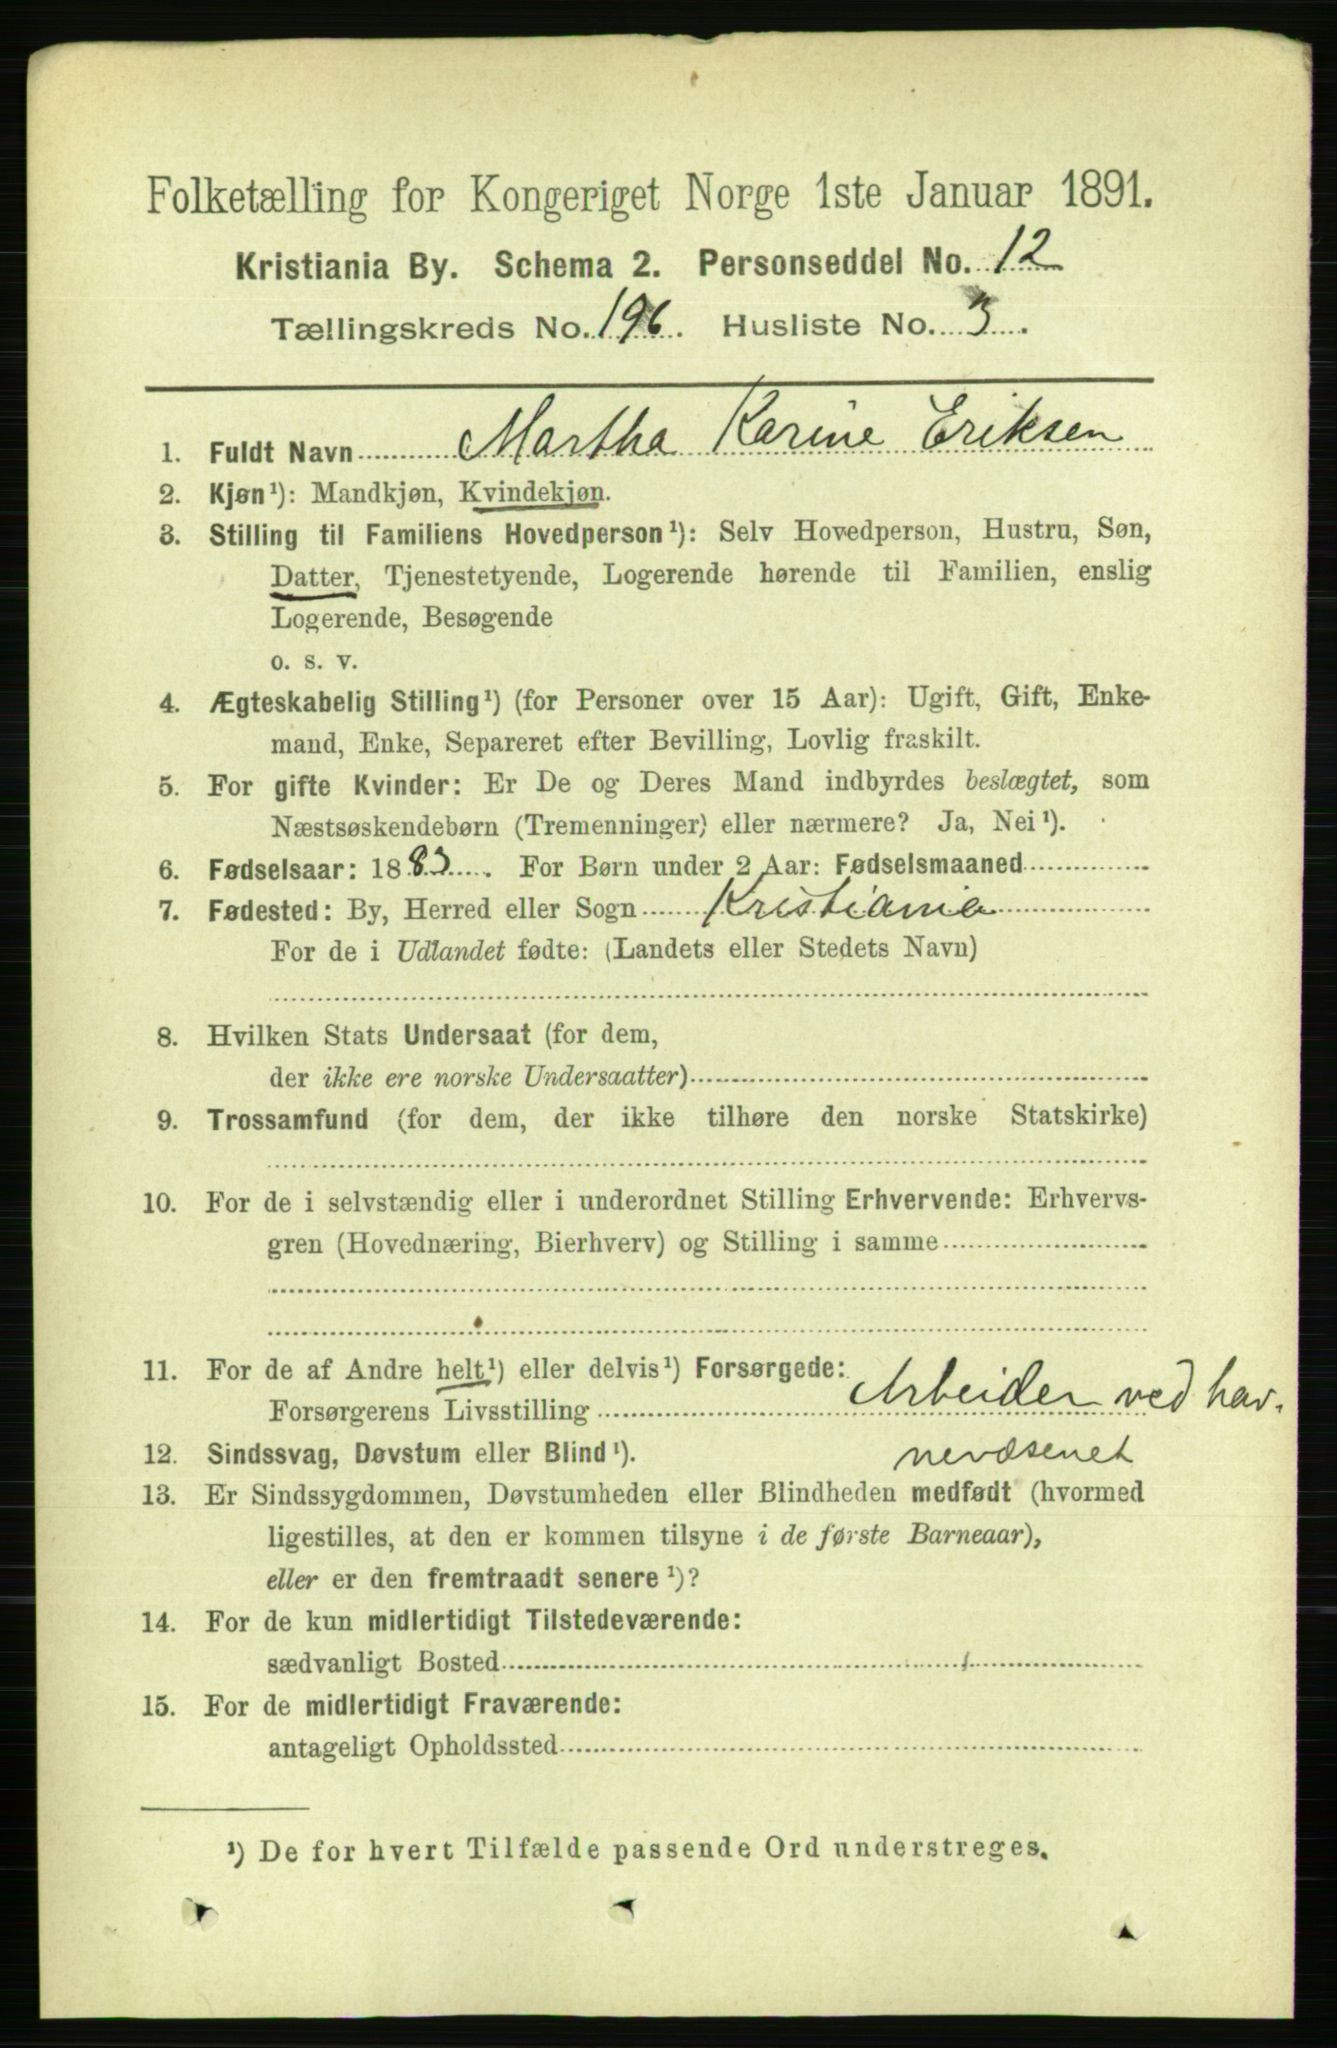 Folketælling for Kongeriget Norge 1ste Januar 1891.
Kristiania By. Schema 2. Personseddel No. 12
Tællingskreds No. 196. Husliste No. 3.
1. Fuldt Navn Martha Karine Eriksen
2. Kjøn¹): Mandkjøn, Kvindekjøn.
3. Stilling til Familiens Hovedperson¹): Selv Hovedperson, Hustru, Søn,
Datter, Tjenestetyende, Logerende hørende til Familien, enslig
Logerende, Besøgende
o. s. v.
4. Ægteskabelig Stilling¹) (for Personer over 15 Aar): Ugift, Gift, Enke-
mand, Enke, Separeret efter Bevilling, Lovlig fraskilt.
5. For gifte Kvinder: Er De og Deres Mand indbyrdes beslægtet, som
Næstsøskendebørn (Tremenninger) eller nærmere? Ja, Nei¹).
6. Fødselsaar: 1883. For Børn under 2 Aar: Fødselsmaaned
7. Fødested: By, Herred eller Sogn Kristiania
For de i Udlandet fødte: (Landets eller Stedets Navn)
8. Hvilken Stats Undersaat (for dem,
der ikke ere norske Undersaatter)
9. Trossamfund (for dem, der ikke tilhøre den norske Statskirke)
10. For de i selvstændig eller i underordnet Stilling Erhvervende: Erhvervs-
gren (Hovednæring, Bierhverv) og Stilling i samme
11. For de af Andre helt¹) eller delvis¹) Forsørgede:
Forsørgerens Livsstilling Arbeider ved hav-
nevæsenet
12. Sindssvag, Døvstum eller Blind¹).
13. Er Sindssygdommen, Døvstumheden eller Blindheden medfødt (hvormed
ligestilles, at den er kommen tilsyne i de første Barneaar),
eller er den fremtraadt senere¹)?
14. For de kun midlertidigt Tilstedeværende:
sædvanligt Bosted
15. For de midlertidigt Fraværende:
antageligt Opholdssted
¹) De for hvert Tilfælde passende Ord understreges.